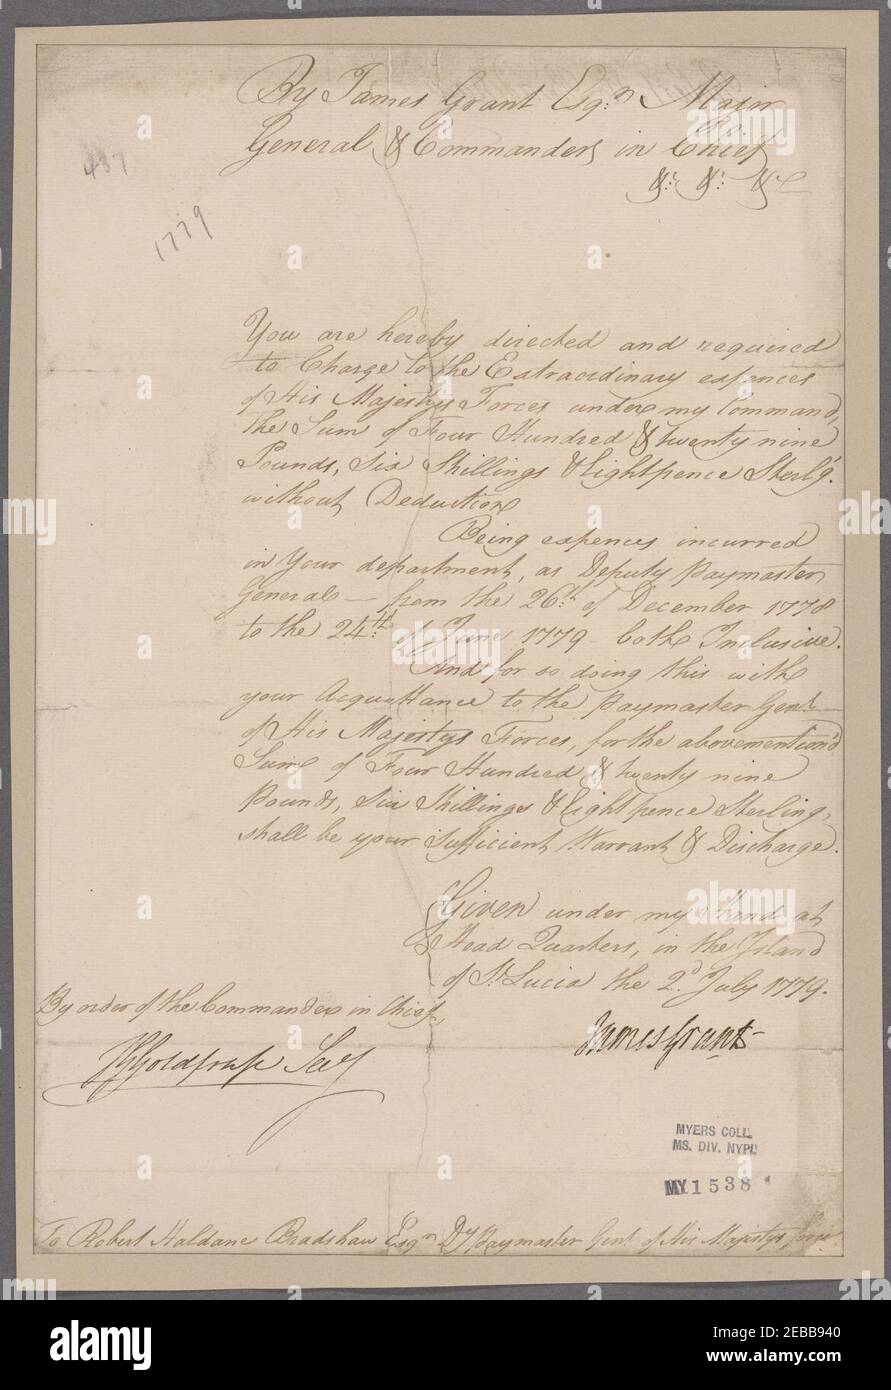 By James Grant Esqr. Major
General & Commander in Chief
&c: &c: &c
437
1779
You are hereby directed and required
to Charge to the Extraordinary expences
of His Majestys Forces under my Command,
the Sum of Four Hundred & twenty nine
Pounds, six Shillings & Eightpence Sterlg.
without Deduction
Being expences incurred
in Your department, as Deputy Paymaster
General — from the 26th. of December 1778
to the 24th. of June 1779 - both Inclusive.
And for so doing this with
your Acquittance to the Paymaster Genl.
of His Majestys Forces, for the abovemention'd
Sum of Four Hundred & twenty nine
Pounds, six Shillings & Eightpence Sterling,
shall be your sufficient Warrant & Discharge.
Given under my Hand at
Head Quarters, in the Island
of St. Lucia the 2d. July 1779.
By order of the Commander in Chief,
James Grant
Goldfrap Secy
MYERS COLL.
MS. DIV. NYPL
MY 1538
To Robert Haldane Bradshaw Esqr. Dy Paymaster Genl of His Majestys force
alamy
Image ID: 2EBB940
www.alamy.com